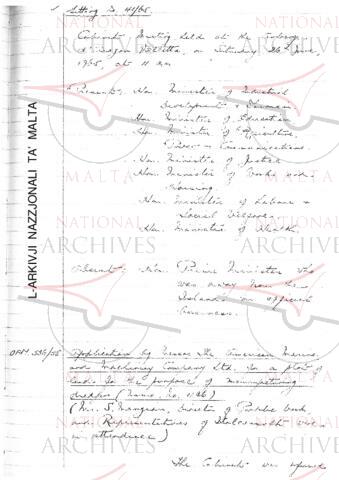 Sitting No. 41/65.
Cabinet Meeting held at the Auberge
d'Aragon Valletta, on Saturday 26th June,
1965, at 11 am
Present: Hon. Minister of Industrial
Development & Finance
Hon. Minister of Education
Hon. Minister of Agriculture,
Power & Communications.
Hon. Minister of Justice
Hon. Minister of Works and
Housing.
Hon. Minister of Labour &
Social Welfare.
Hon. Minister of Health.
Absent: Hon. Prime Minister who
was away from the
Island on official
business.
OPM.
Application by Messrs The American
and Machinery Company Ltd. for a plot of
land for the purpose of manufacturing
(Memo. No. 1146)
(Mr. S. Mangion, Director of Public Works
and Representatives of were
in attendance)
The Cabinet was informed
L-ARKIVJI NAZZJONALI TA' MALTA
NATIONAL
ARCHIVES
MALTA